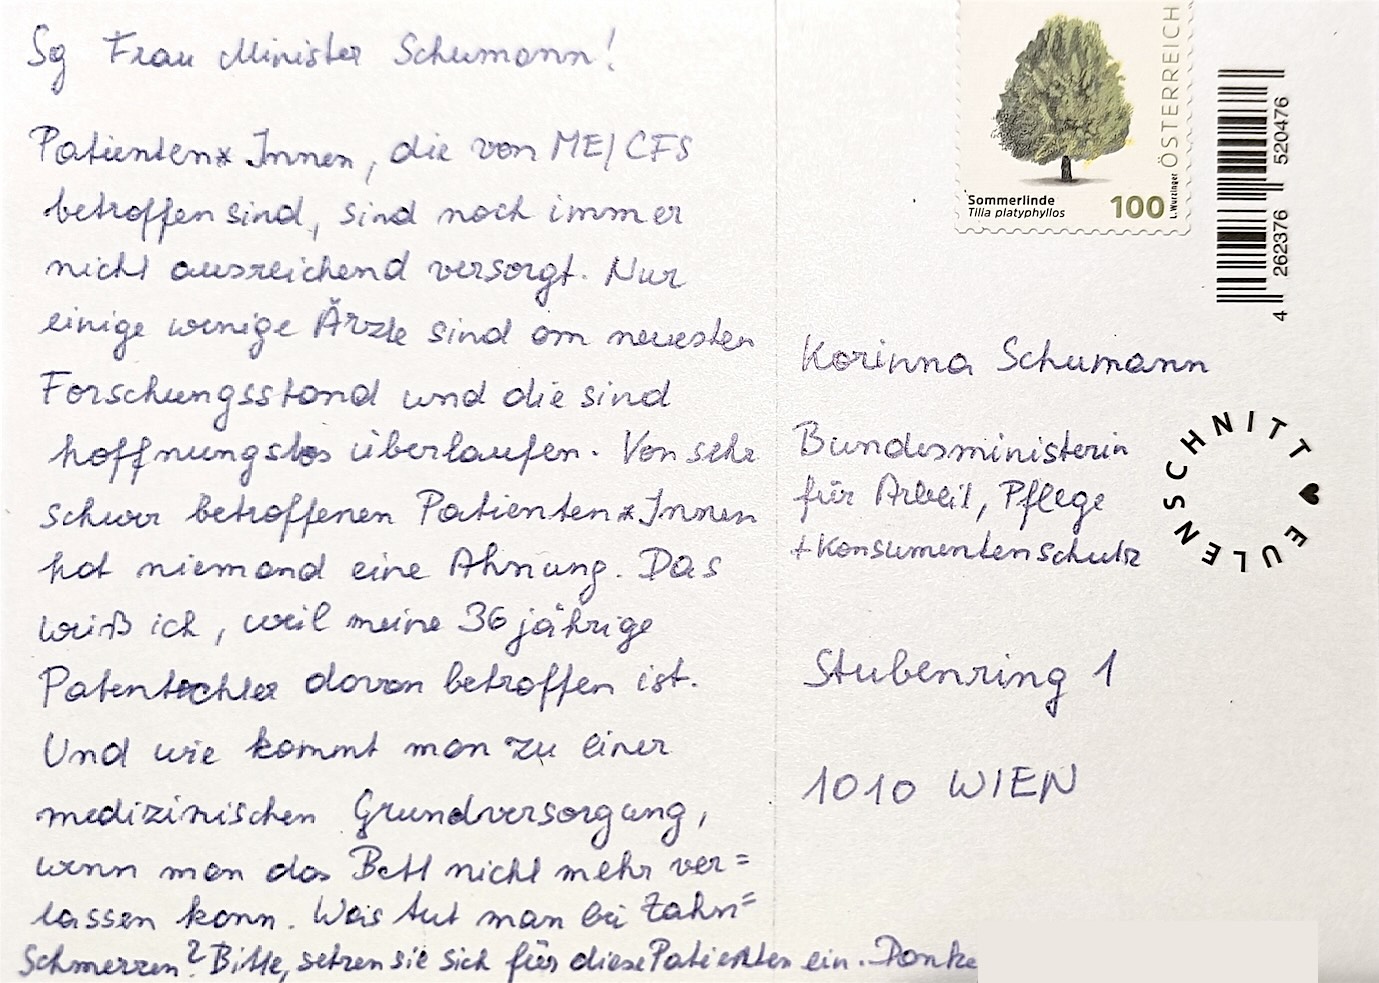 Sg Frau Minister Schumann!
Patienten*Innen, die von ME/CFS
betroffen sind, sind noch immer
nicht ausreichend versorgt. Nur
einige wenige Ärzte sind am neuesten
Forschungsstand und die sind
hoffnungslos überlaufen. Von sehr
schwer betroffenen Patienten*Innen
hat niemand eine Ahnung. Das
weiß ich, weil meine 36 jährige
Patentochter davon betroffen ist.
Und wie kommt man zu einer
medizinischen Grundversorgung,
wenn man das Bett nicht mehr ver=
lassen kann. Was tut man bei Zahn=
Schmerzen? Bitte, setzen sie sich für diese Patienten ein. Danke
ÖSTERREICH
Sommerlinde
Tilia platyphyllos
100
L. Wurzinger
4 262376 520476
Korinna Schumann
Bundesministerin
für Arbeit, Pflege
+ Konsumentenschutz
EULENSCHNITT
Stubenring 1
1010 WIEN